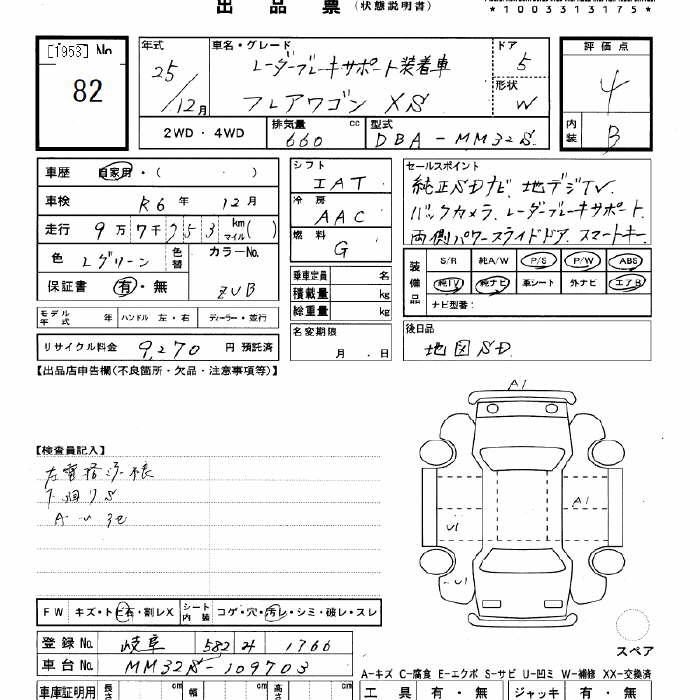 出 品 票 (状態説明書)
*1003313175*
[1953] No
82
年式 25/12月
車名・グレード レーダーブレーキサポート装着車
フレアワゴン XS
ドア 5
形状 W
評価点 4
内装 B
2WD・4WD
排気量 660 cc
型式 DBA-MM32S
車歴 自家用・( )
車検 R6年 12月
走行 9万7千253 km マイル( )
色 Lグリーン 色替 カラーNo. ZUB
保証書 有・無
モデル年式 年 ハンドル 左・右 ディーラー・並行
リサイクル料金 9,270 円 預託済
シフト IAT
冷房 AAC
燃料 G
乗車定員 名
積載量 kg
総重量 kg
名変期限 月 . 日
セールスポイント
純正SDナビ、地デジTV、
バックカメラ、レーダーブレーキサポート、
両側パワースライドドア、スマートキー、
装備品 S/R 純A/W P/S P/W ABS
純TV 純ナビ 革シート 外ナビ エアB
ナビ型番:
後日品
地図SD.
【出品店申告欄(不良箇所・欠品・注意事項等)】
【検査員記入】
下回りS
A1
A1
U1
U1
FW キズ・トビ石・割レX シート内装 コゲ・穴・汚レ・シミ・破レ・スレ
登録No. 岐阜 582 1766
車台No. MM32S-109703
スペア
A-キズ C-腐食 E-エクボ S-サビ U-凹ミ W-補修 XX-交換済
車庫証明用 長さ cm 幅 cm cm
工具 有・無 ジャッキ 有・無